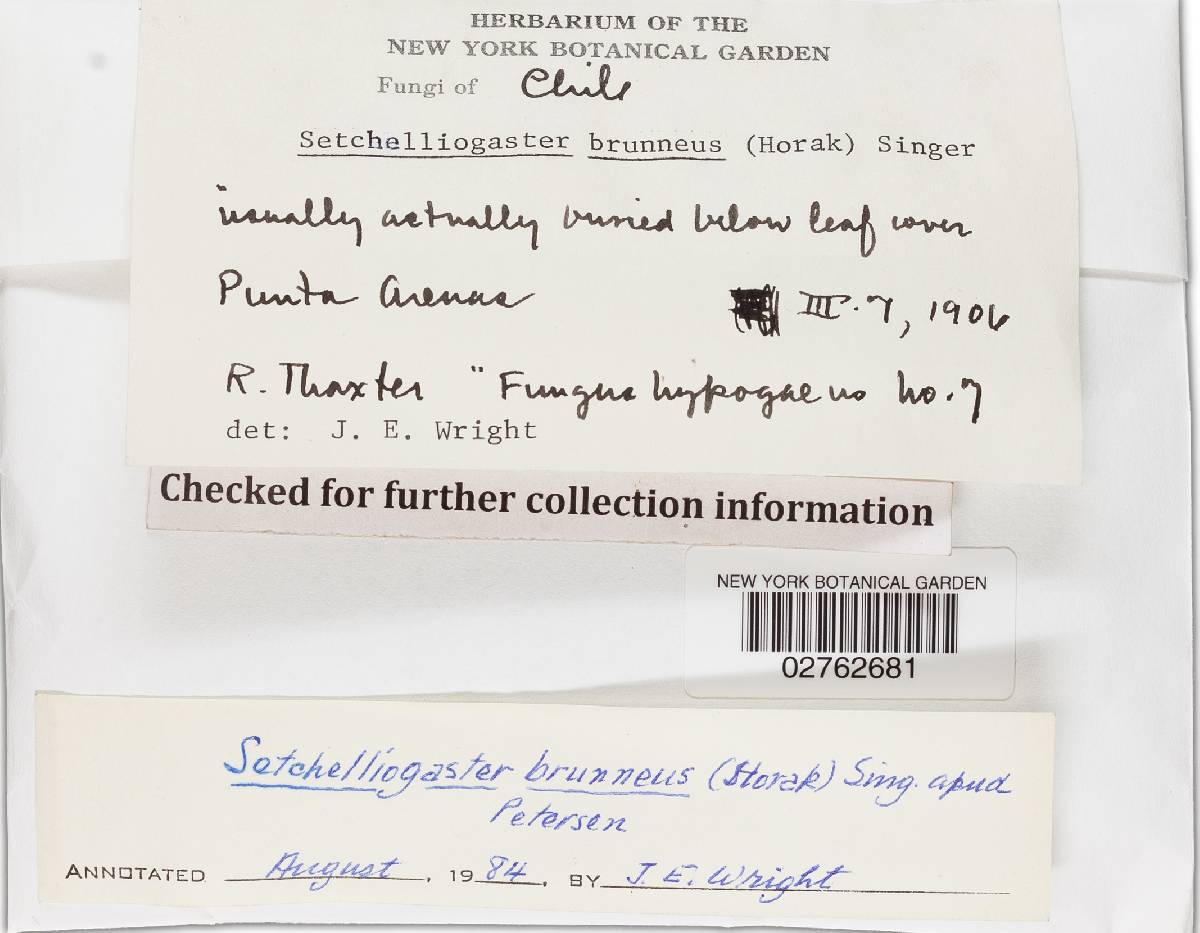 HERBARIUM OF THE
NEW YORK BOTANICAL GARDEN
Fungi of Chile
Setchelliogaster brunneus (Horak) Singer
"usually actually buried below leaf cover
Punta Arenas III.7, 1906
R. Thaxter "Fungus hypogaeus no. 7
det: J. E. Wright
Checked for further collection information
NEW YORK BOTANICAL GARDEN
02762681
Setchelliogaster brunneus (Horak) Sing. apud
Petersen
ANNOTATED August, 1984, BY J. E. Wright